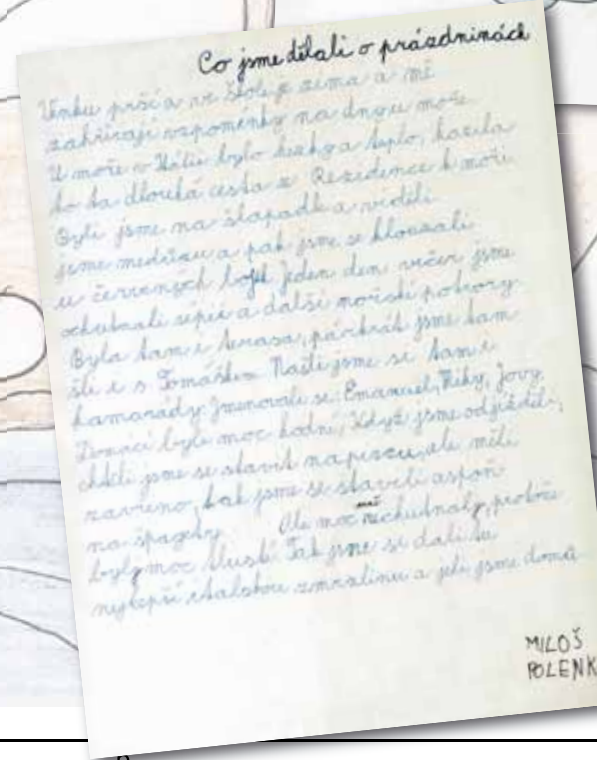 Co jsme dělali o prázdninách
Venku prší a ve škole je zima a mě
zahřívají vzpomínky na dnyu moře.
U moře v Itálii bylo hezky a teplo, kazila
to ta dlouhá cesta z Rezidence k moři.
Byli jsme na šlapadle a viděli
jsme medúzu a pak jsme se klouzali
u červených bojek. Jeden den večer jsme
ochutnali sépie a další mořské potvory.
Byla tam i terasa, párkrát jsme tam
šli i s Tomáškem. Našli jsme si tam i
kamarády. Jmenovali se: Emanuel, Riky, Jovy.
Domácí byli moc hodní. Když jsme odjížděli,
chtěli jsme se stavit na pizzu, ale měli
zavřeno, tak jsme se stavili aspoň
na špagety. Ale moc mě nechutnaly, protože
byly moc tlusté. Tak jsme si dali tu
nejlepší italskou zmrzlinu a jeli jsme domů.
MILOŠ
POLENK